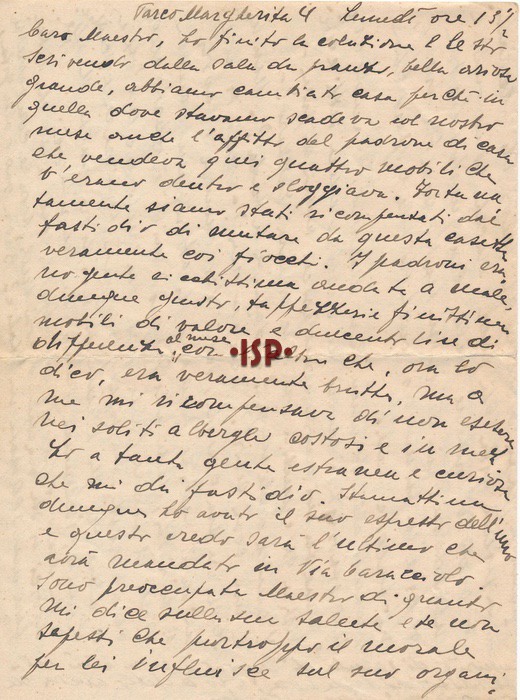 Parco Margherita 4 Lunedì ore 15½
Caro Maestro, ho finito la colazione e le sto
scrivendo dalla sala da pranzo, bella ariosa
grande, abbiamo cambiato casa perchè in
quella dove stavamo scadeva col nostro
mese anche l'affitto del padrone di casa
che vendeva quei quattro mobili che
v'erano dentro e sloggiava. Fortuna
tamente siamo stati ricompensati dal
fastidio di mutare da questa casetta
veramente coi fiocchi. I padroni era
no gente ricchissima andata a male,
dunque gusto, tappezzerie finissime
mobili di valore e duecento lire di
differenza al mese con che, ora lo
dico, era veramente brutta, ma a
me mi ricompensava di non essere
nei soliti alberghi costosi e in mez
zo a tanta gente estranea e curiosa
che mi dà fastidio. Stamattina
dunque ho avuto il suo espresso dell'uno
e questo credo sarà l'ultimo che
avrà mandato in Via Caracciolo.
Sono preoccupata Maestro di quanto
mi dice sulla sua salute e se non
sapessi che purtroppo il morale
per lei influisce sul suo organi-
ISP